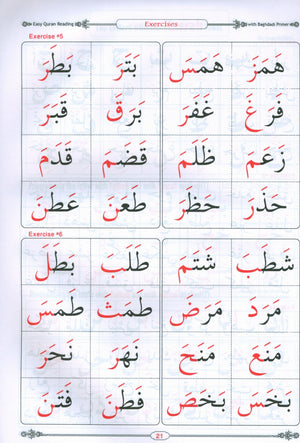 Easy Quran Reading Exercises with Baghdadi Primer
Exercise #5
هَمَزَ هَمَسَ بَتَرَ بَطَرَ
فَرَغَ غَفَرَ بَرَقَ قَبَرَ
زَعَمَ ظَلَمَ قَضَمَ قَدَمَ
حَذَرَ حَظَرَ طَعَنَ عَطَنَ
Exercise #6
شَطَبَ شَتَمَ طَلَبَ بَطَلَ
مَرَدَ مَرَضَ طَمَثَ طَمَسَ
مَنَعَ مَنَحَ نَهَرَ نَحَرَ
بَخَسَ بَخَصَ فَطَنَ فَتَنَ
21